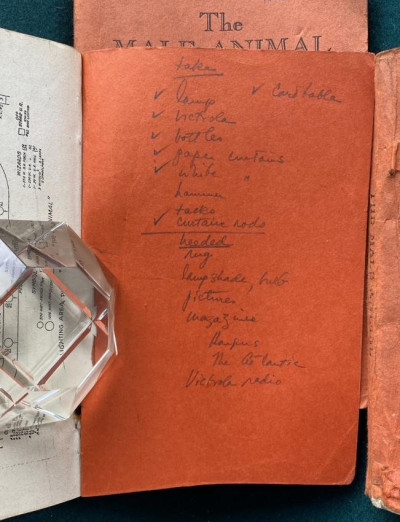 The
MALE ANIMAL
taken
✓ lamp
✓ card table
✓ victrola
✓ bottles
✓ paper curtains
✓ white "
hammer
tacks
✓ curtain rods
needed
rug
lampshade, bulb
pictures
magazines
Harpers
The Atlantic
Victrola radio
WIZARDS
ANIMAL"
LIGHTING AREA